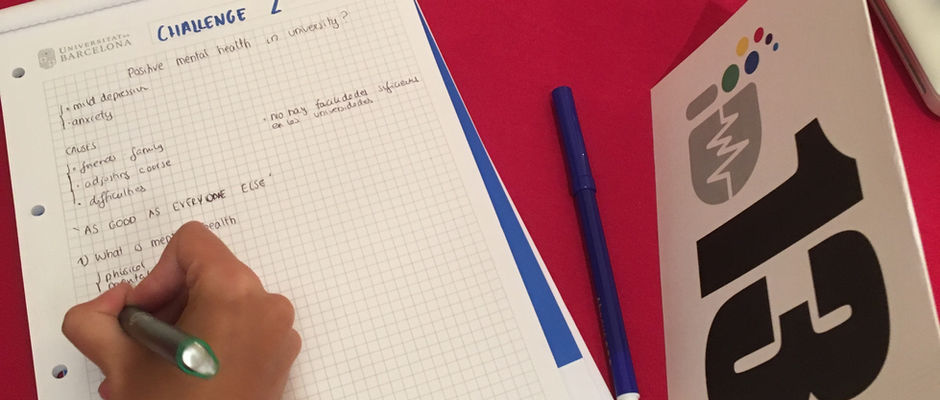 UNIVERSITAT DE
BARCELONA
CHALLENGE 2
Positive mental health in university?
· mild depression
· anxiety
· No hay facilidades suficientes
en las universidades
CAUSES
· friends family
· adjusting course
· difficulties
"AS GOOD AS EVERYONE ELSE"
1) What is mental health
phisical
13